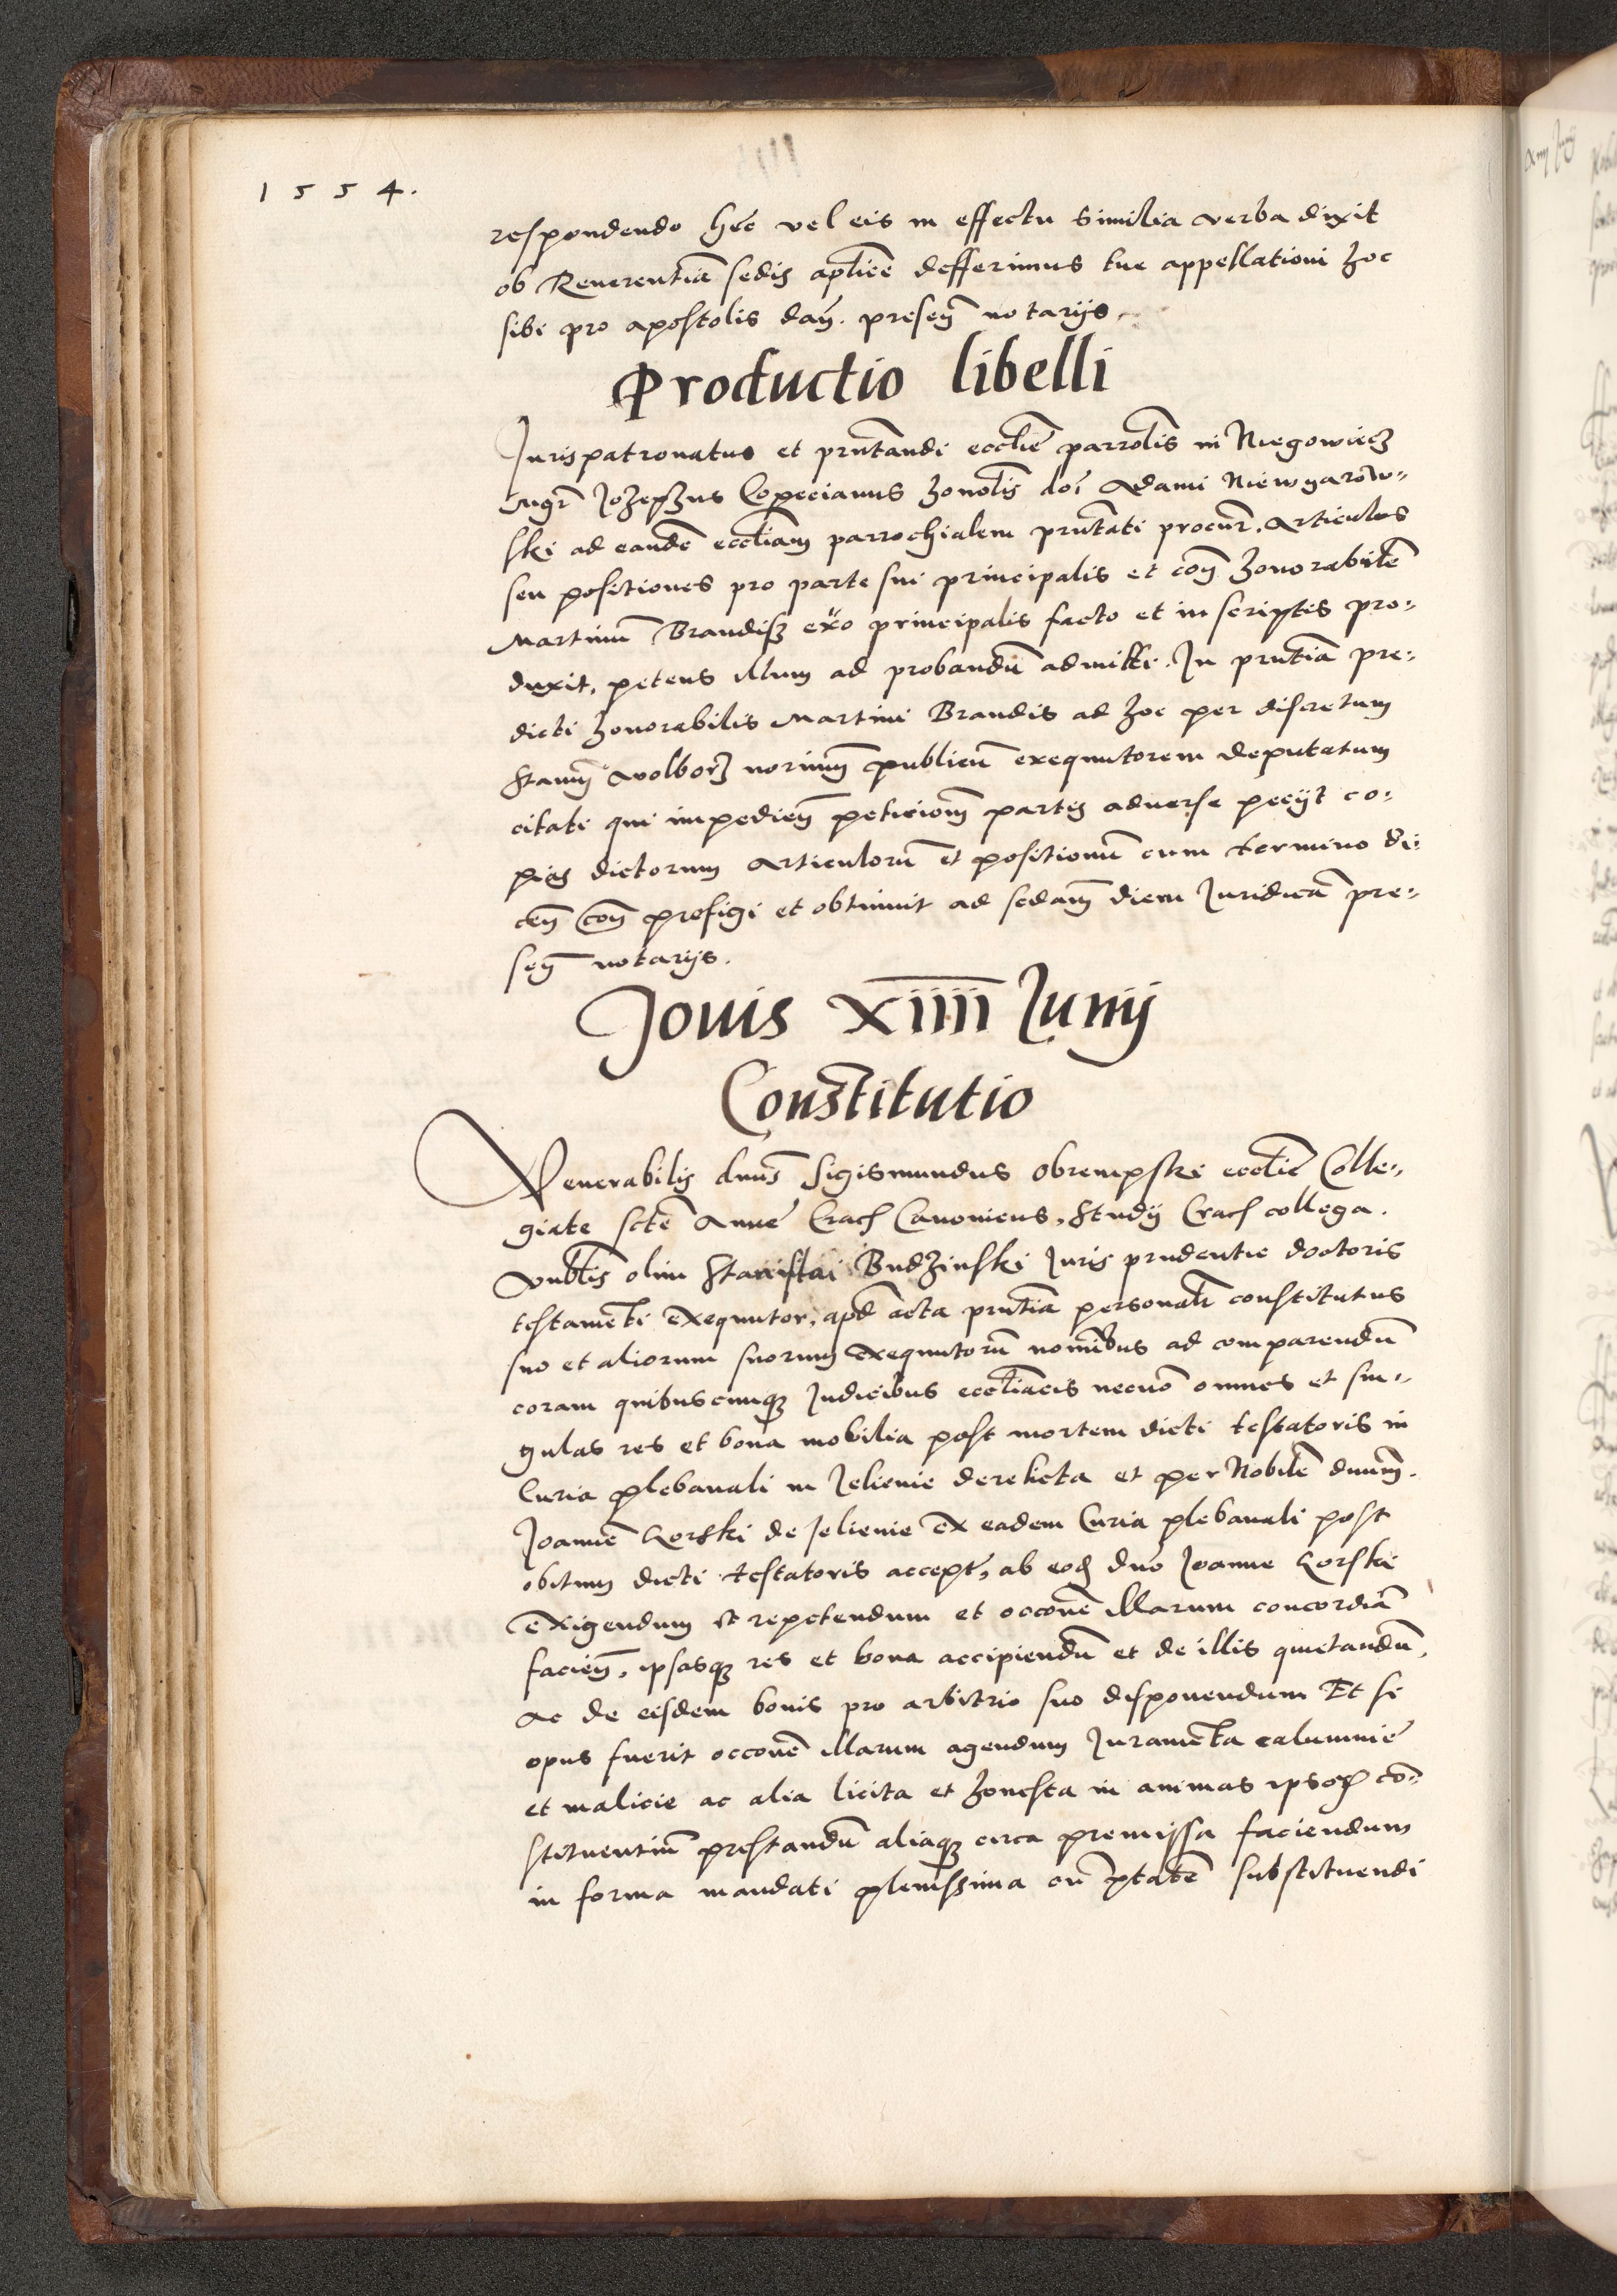 1554.
respondendo hec vel eis in effectu similia verba dixit
ob Reuerentiā sedis aplīce defferimus tue appellationi hoc
sibi pro apostolis dañ. preseñ notarijs
Productio libelli
Jurispatronatus et prñtandi ecclīe parrolīs in Niegowiecz
Mgr̄ Jozephus Copecianus honolīs doī Adami Niewgarow-
ski ad eandē eccliam parrochialem prñtati procur̄. Articulos
seu positiones pro parte sui principalis et coñ honorabilē
Martinū Brandisz ex̄o principalis facto et in scriptis pro-
duxit, petens illum ad probandū admitti. In prñtiā pre-
dicti honorabilis Martini Brandis ad hoc per discretum
Stanīm Wolborz norium publicū exequutorem deputatum
citati qui impedieñ peticionē partis aduerse pecijt co-
pias dictorum articulorū et positionū cum termino di-
ceñ coñ prefigi et obtinuit ad scdam diem Juridicā pre-
señ notarijs.
Jouis XIIII Junij
Constitutio
Venerabilis dnūs Sigismundus Obrempski ecclīe Colle-
giate scte Anne Crach Canonicus, Studij Crach collega.
Vnblīs olim Stanislai Budzinski Juris prudentie doctoris
testamēti exequutor, apd acta prñtiā personalr̄ constitutus
suo et aliorum suorum exequutorū nomībus ad comparendū
coram quibuscumqȝ Judicibus eccliācis necnō omnes et sin-
gulas res et bona mobilia post mortem dicti testatoris in
Curia plebanali in Jelienie derelicta et per Nobilē dnum.
Joannē Gorski de Jelienie ex eadem Curia plebanali post
obitum dicti testatoris accept̄, ab eod dno Joanne Gorski
exigendum et repetendum et occonē illarum concordiā
facień, ipsasqȝ res et bona accipiendū et de illis quietandū,
ac de eisdem bonis pro arbitrio suo disponendum Et si
opus fuerit occonē illarum agendum Juramēta calumnie
et malicie ac alia licita et honesta in animas ipsoꝝ cō-
stituentiū prestandū aliaqȝ circa premissa faciendum
in forma mandati plenissima cū ptatē substituendi